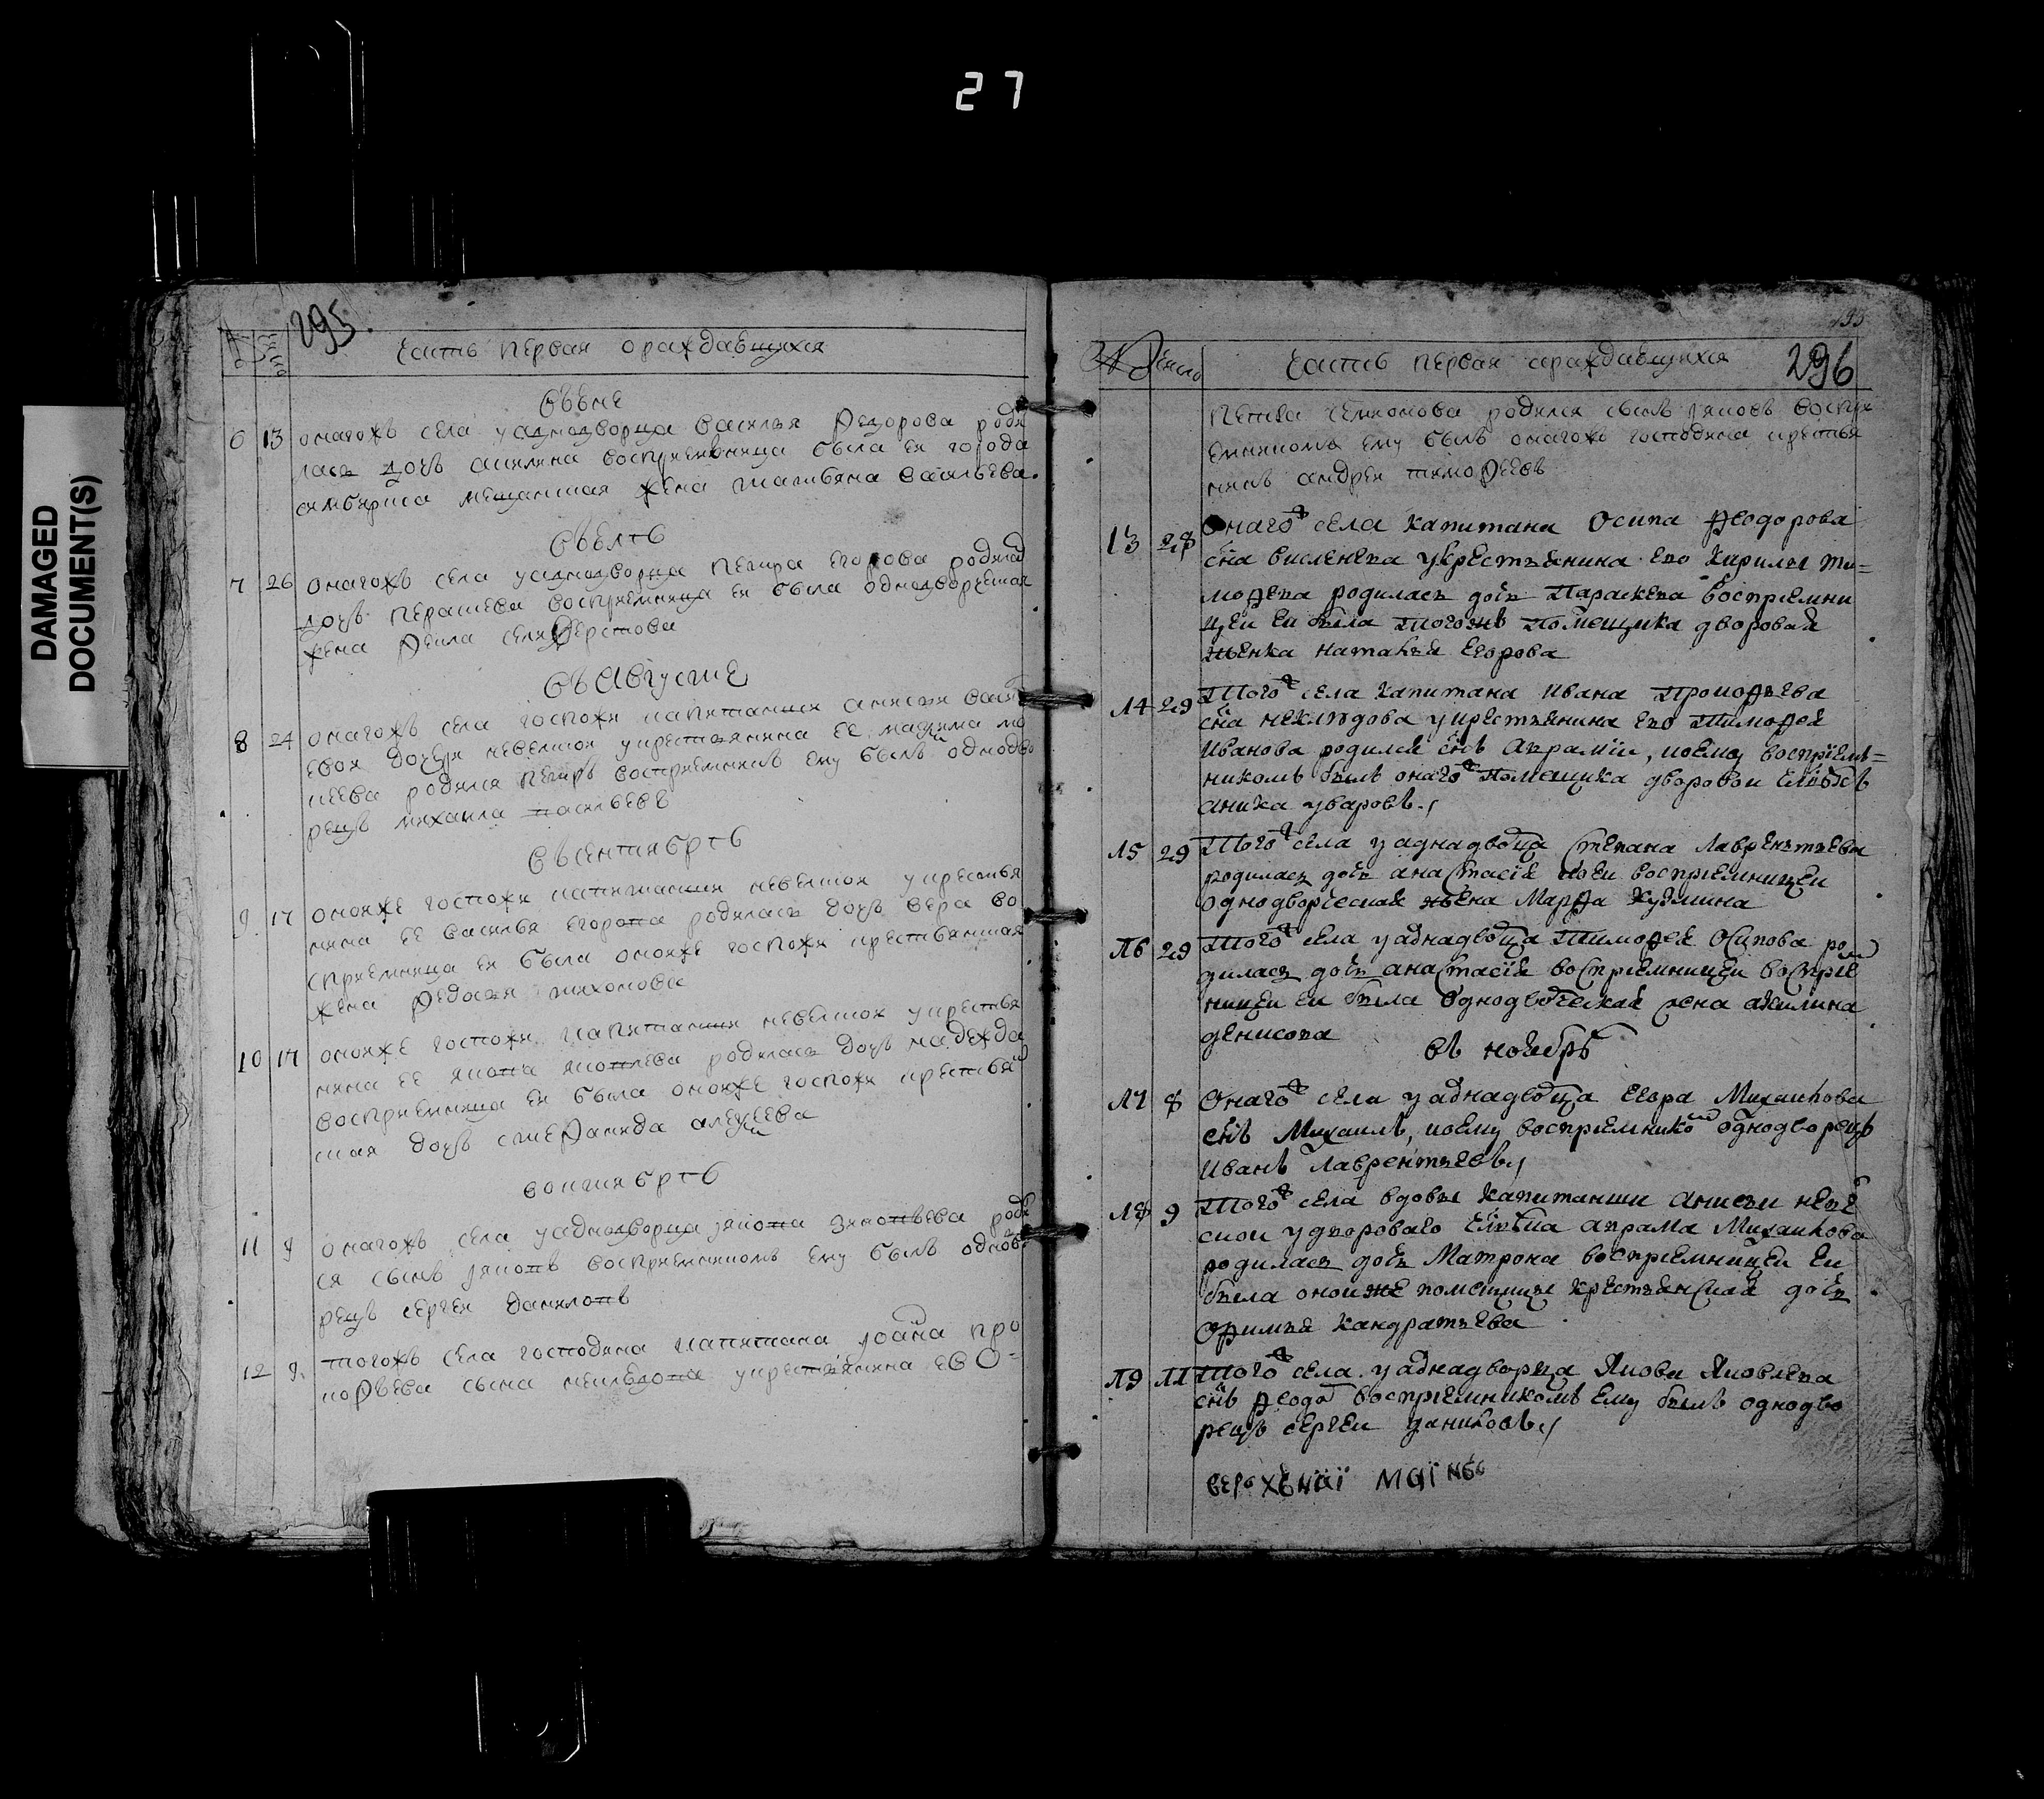 27
DAMAGED
DOCUMENT(S)
295.
№ число
часть первая ораждавшихся
въ юне
6 13 онагожъ села уаднодворца василья Федорова роди
лась дочь акилина восприемница была ей города
симбирска мещанская жена татьяна васильева.
въ юлѣ
7 26 онагожъ села уаднодворца петра егорова родила
дочь перасковья восприемница ей была однодворческая
жена селиверстова
въ Августе
8 24 онагожъ села госпожи капитанши анисьи васи
евой дочери укрестьянина ее максима мо
сеева родился петръ восприемникъ ему былъ однодво
рецъ михаила васильевъ
въ сентябрѣ
9 17 оноиже госпожи капитанши укрестья
нина ее василья егорова родилась дочь вера во
сприемница ей была оноиже госпожи крестьянская
жена федосья тихонова
10 17 оноиже госпожи капитанши укрестья
нина ее якова яковлева родилась дочь надежда
восприемница ей была оноиже госпожи крестьян
ская дочь степанида алексеева
вокътябрѣ
11 9 онагожъ села уаднодворца якова яковлева роди
ся сынъ яковъ восприемникомъ ему былъ однодво
рецъ сергеи даниловъ
12 9. тогожъ села господина капитана іоана про
кофьева сына неклюдова укрестьянина ево
№ число
часть первая ораждавшихся
296
семионова родился сынъ яковъ воспри
емникомъ ему былъ онагожъ господина крестья
нинъ андреи тимофеевъ
13 28 Онагож села капитана Осипа Феодорова
сна укрестьянина его Кирилы Ти=
мофева родилась дочь Параскева восприемни
цеи еи была тогожъ помещика дворовая
женка Наталья Егорова
14 29 Того ж села капитана Ивана Прокофьева
сна неклюдова укрестьянина его Тимофея
Иванова родился снъ Аврамiи, коему восприем=
никомъ былъ онаго ж помещика дворовои члвкъ
аника уваровъ.
15 29 Того ж села уаднадворца Степана Лаврентьева
родилась дочь анастасiя коеи восприемницеи
однодворческая жена Марфа Кузмина
16 29 Того ж села уаднадворца Тимофея Осипова ро
дилась дочь анастасiя восприемницеи восприем
ницеи еи была однодворческая жена акилина
денисова
въ ноябрѣ
17 8 Онаго ж села уаднадворца Егора Михаилова
снъ Михаилъ, коему восприемником однодворецъ
Иванъ Лаврентьевъ
18 9 Того ж села вдовы капитанши анисьи
удвороваго члвка аврама Михаилова
родилась дочь Матрона восприемницеи еи
была оноиже помещицы крестьянская дочь
Ефимья Кандратьева
19 11 Того ж села уаднадворца Якова Яковлева
снъ Феодор восприемникомъ ему былъ однодво
рецъ сергеи даниловъ